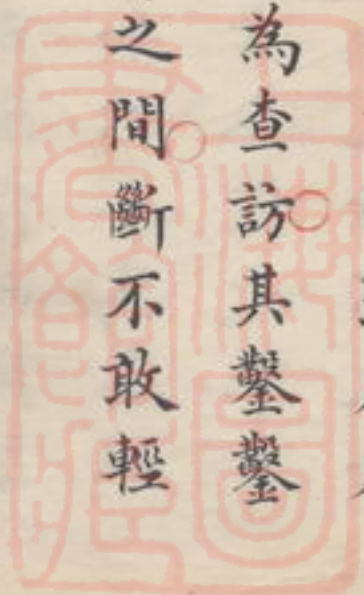 為查訪其鑿鑿
之間斷不敢輕